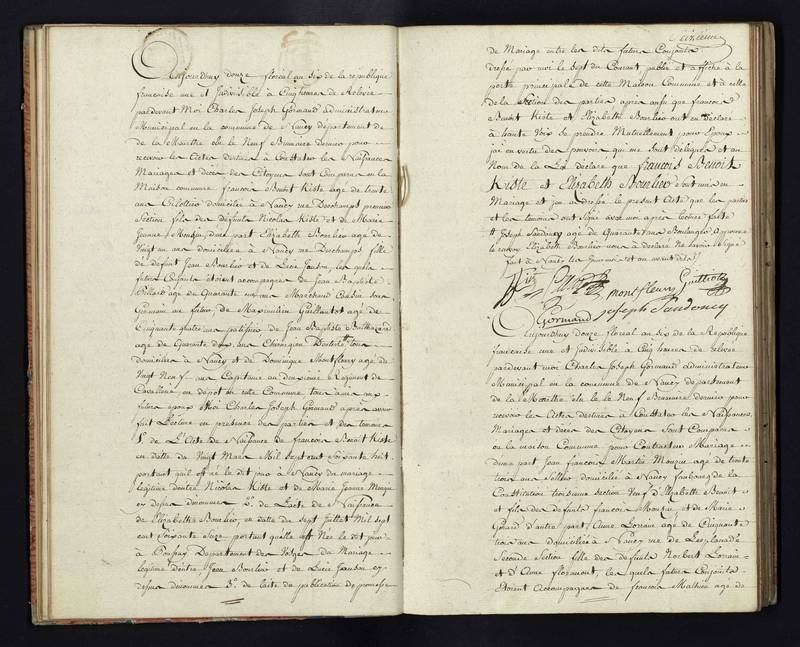 Aujourdhuy douze floréal an six de la republique
francaise une et Indivisible à Cinq heures de Relevée
pardevant Moi Charles Joseph Gormand administrateur
Municipal en la commune de Nancy département de
de la Meurthe élu le Neuf Brumaire dernier pour
recevoir les Actes destinés à Constater les Naissances
Mariages et décès des Citoyens sont Comparus en la
Maison commune francois Benoit Kiste agé de trente
ans domicilié à Nancy rue Duchamps premiere
Section fils des défunts Nicolas Kiste et de Marie
Jeanne dune part Elizabeth Bourlier agé de
Vingt un ans domiciliée à Nancy rue Duchamps fille
de défunt Jean Bourlier et de Lucie Jandon, les quels
futurs Conjoints étoient accompagnés de Jean Baptiste
agé de Quarante un ans Marchand Cousin sous
Germain au futur de Maximilien Guillautot agé de
Cinquante quatre ans patissier de Jean Baptiste
agé de Quarante deux ans Chirurgien Dentiste tous
domiciliés à Nancy et de Dominique Montfleury agé de
Vingt Neuf ans Capitaine au deuxième Régiment de
Cavallerie en dépot en cette Commune tous amis aux
futurs époux Moi Charles Joseph Gormand après avoir
fait Lecture en présence des parties et des temoins
1°. de L'Acte de Naissance de francois Benoit Kiste
en datte du Vingt Mars Mil Sept cent Soixante huit
portant quil est né le dit jour à Nancy du mariage
légitime dentre Nicolas Kiste et de Marie Jeanne
cy dessus denommés 2°. de Lacte de Naissance
de Elizabeth Bourlier en datte du sept Juillet Mil sept
cent Soixante Seize portant quelle est Née le dit jour
à Département des Vosges du Mariage
légitime dentre Jean Bourlier et de Lucie Jandon cy
dessus denommés 3°. de lacte de publication de promesse
Seizieme
de Mariage entre les dits futurs Conjoints
dressé par moi le Sept du Courant publié et affiché à la
porte principale de cette Maison Commune et à celle
de la Section des parties après aussi que francois
Benoit Kiste et Elizabeth Bourlier ont eu déclaré
à haute Voix se prendre Mutuellement pour Epoux
jai en vertu des pouvoirs qui me sont délégués et au
Nom de la Loi déclaré que francois Benoit
Kiste et Elizabeth Bourlier sont unis en
Mariage et jen ai dressé le présent Acte que les parties
et les temoins ont signé avec moi après Lecture faite
Joseph Sandoncy agé de Quarante ans Boulanger approuvé
Elizabeth Bourlier nous à déclaré ne savoir Signer
fait à Nancy les jour mois et an avant dits
montfleury Guillautot
Gormand Joseph Sandoncy
Aujourdhuy douze floréal an six de la République
francaise une et Indivisible à Cinq heures de relevée
pardevant moi Charles Joseph Gormand administrateur
Municipal en la commune de Nancy département
de la Meurthe élu le Neuf Brumaire dernier pour
recevoir les Actes destinés à Constater les Naissances
Mariages et décès des Citoyens Sont Comparus
en la maison Commune pour Contracter Mariage
dune part Jean francois Martin agé de trente
trois ans domicilié à Nancy faubourg de la
Constitution troisieme section Veuf d'Elizabeth Benoit
et fils des défunts francois et de Marie
Girard d'autre part Anne Lorrain agé de Cinquante
trois ans domiciliée à Nancy rue de
Seconde Section fille des défunts Norbert Lorrain
et d'Anne Floremont, les quels futurs Conjoints
étoient Accompagnés de francois Mathieu agé de